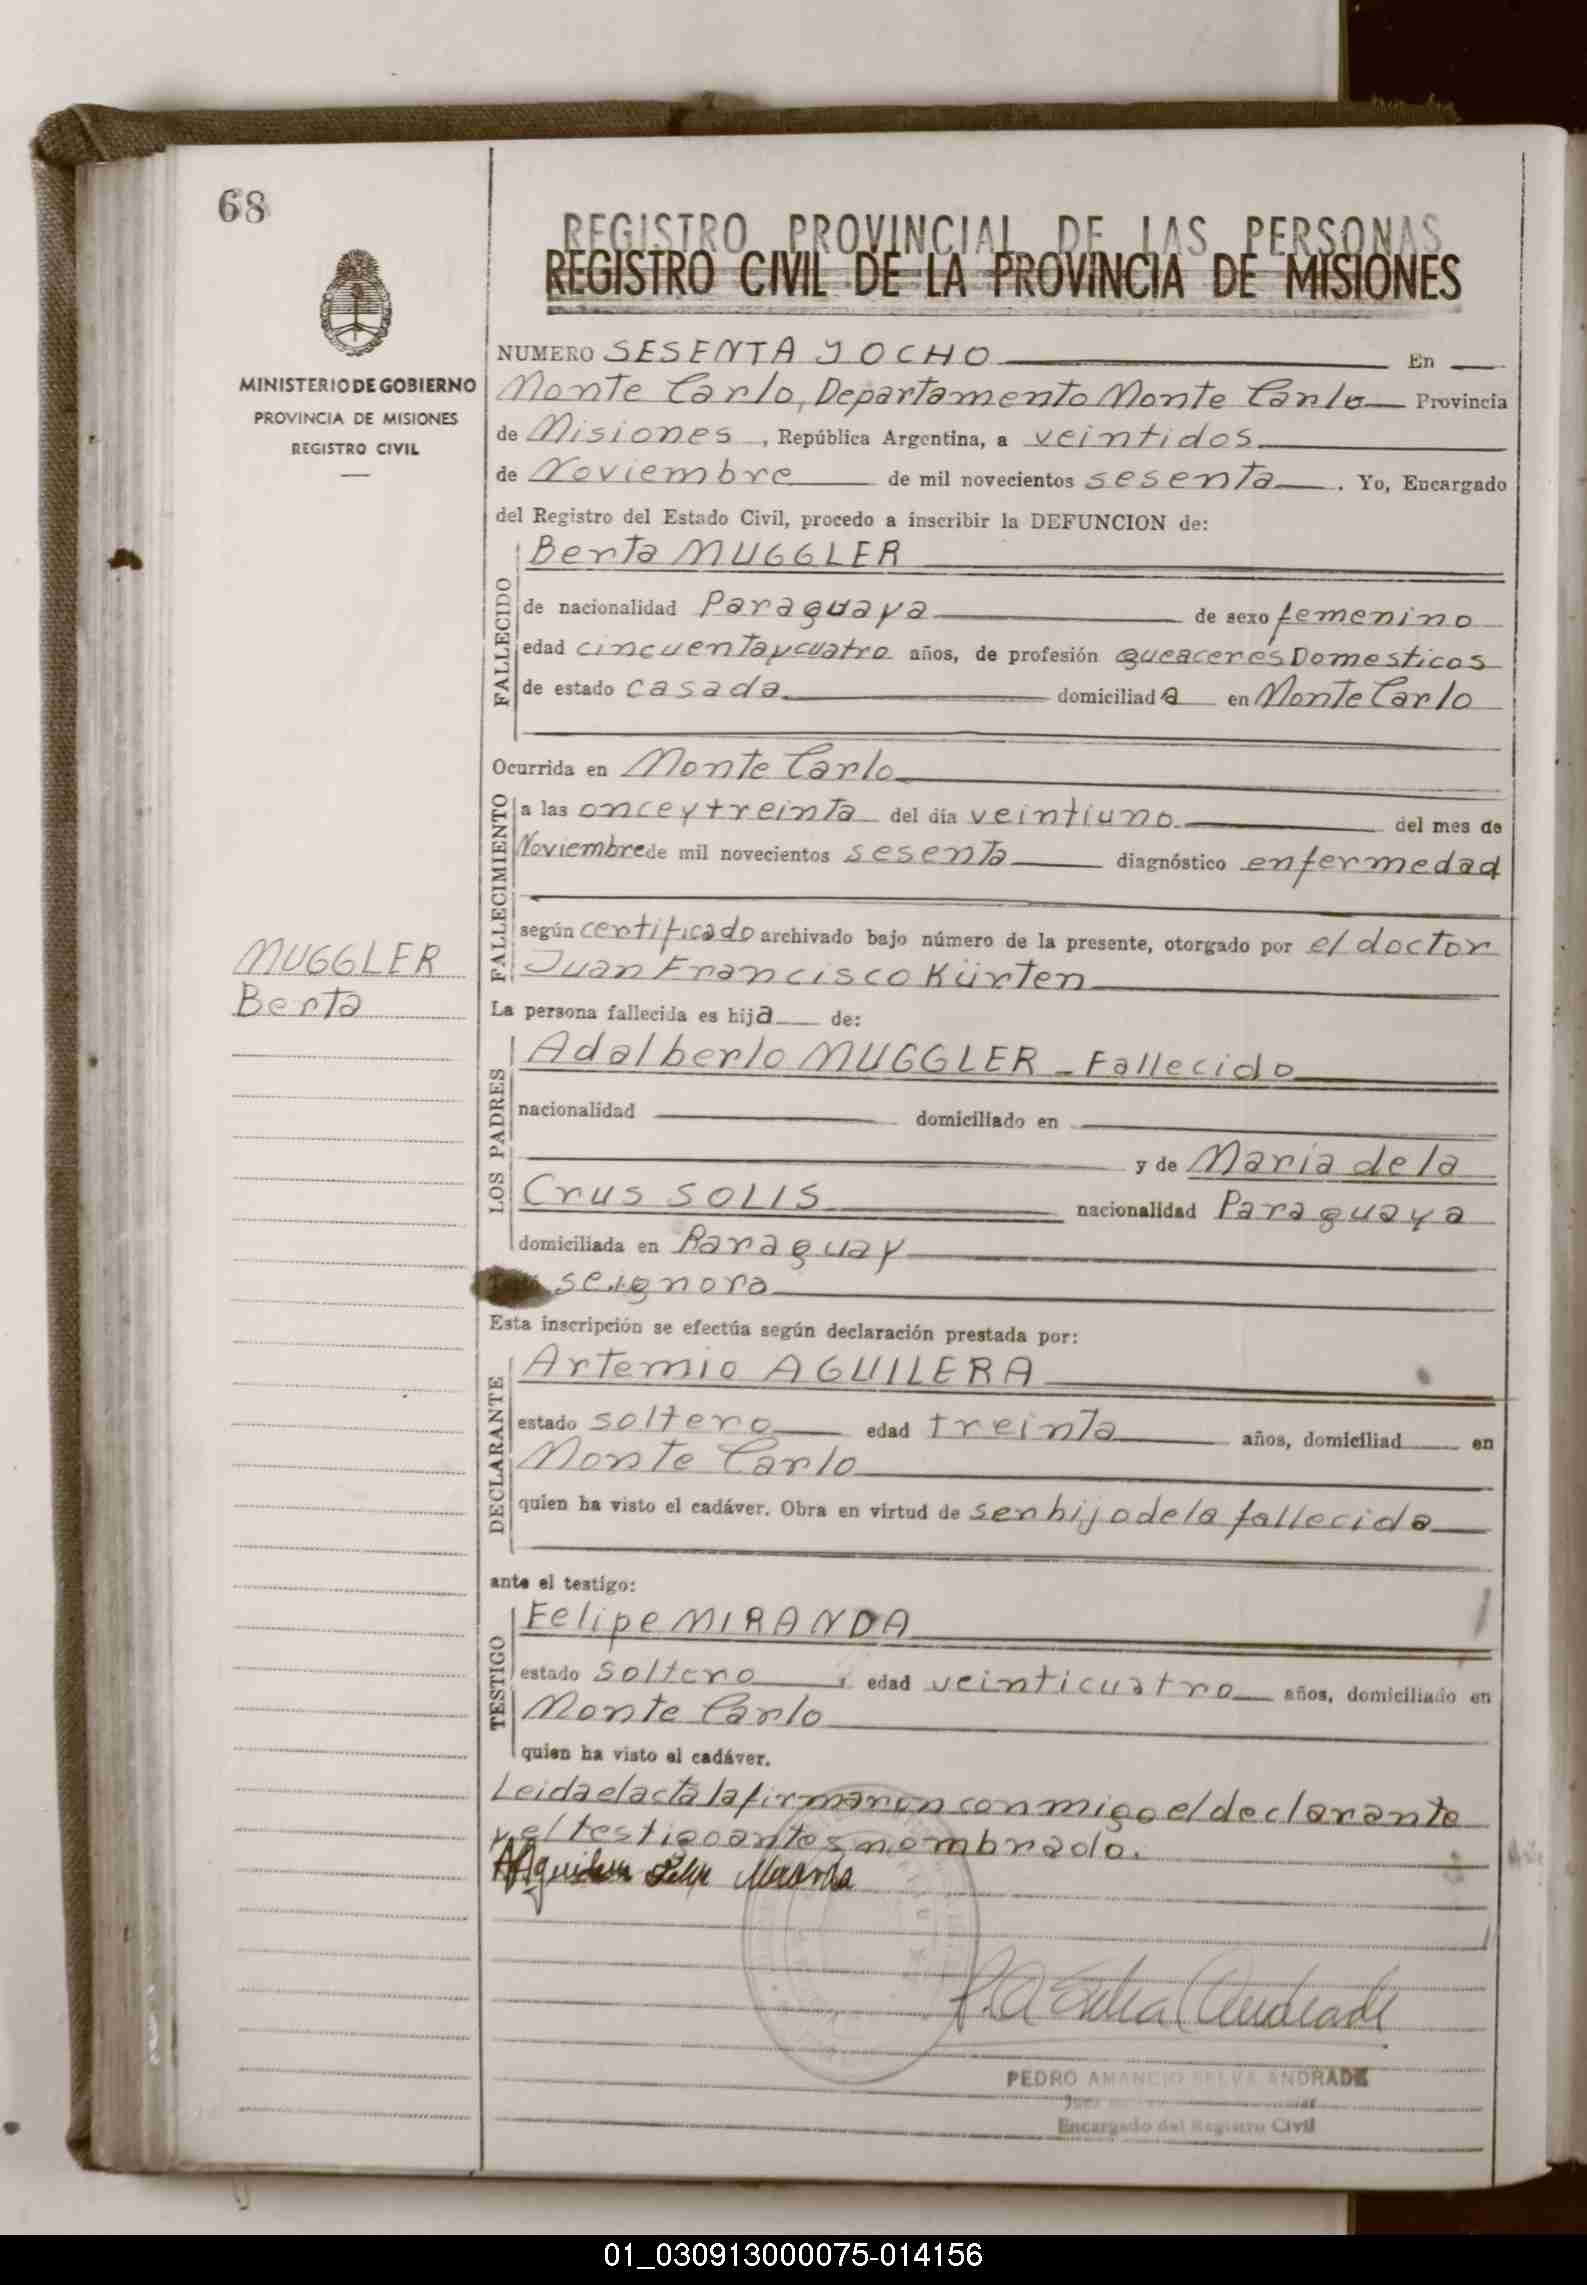 68
REGISTRO PROVINCIAL DE LAS PERSONAS
REGISTRO CIVIL DE LA PROVINCIA DE MISIONES
MINISTERIO DE GOBIERNO
PROVINCIA DE MISIONES
REGISTRO CIVIL
NUMERO SESENTA Y OCHO En
Monte Carlo, Departamento Monte Carlo Provincia
de Misiones, República Argentina, a veintidos
de Noviembre de mil novecientos sesenta. Yo, Encargado
del Registro del Estado Civil, procedo a inscribir la DEFUNCION de:
FALLECIDO
Berta MUGGLER
de nacionalidad Paraguaya de sexo femenino
edad cincuentaycuatro años, de profesión queaceres Domesticos
de estado casada domiciliada en Monte Carlo
Ocurrida en Monte Carlo
FALLECIMIENTO
a las once y treinta del día veintiuno del mes de
Noviembre de mil novecientos sesenta diagnóstico enfermedad
según certificado archivado bajo número de la presente, otorgado por el doctor
Juan Francisco Kürten
MUGGLER
Berta
La persona fallecida es hija de:
LOS PADRES
Adalberlo MUGGLER - Fallecido
nacionalidad domiciliado en
y de Maria de la
Crus SOLIS nacionalidad Paraguaya
domiciliada en Paraguay
se ignora
Esta inscripción se efectúa según declaración prestada por:
DECLARANTE
Artemio AGUILERA
estado soltero edad treinta años, domiciliad en
Monte Carlo
quien ha visto el cadáver. Obra en virtud de ser hijo de la fallecida
ante el testigo:
TESTIGO
Felipe MIRANDA
estado soltero, edad veinticuatro años, domiciliado en
Monte Carlo
quien ha visto el cadáver.
Leida el acta la firmaron conmigo el declarante
y el testigo antes nombrado.
AAguilera Felipe Miranda
P.A Selva Andrade
PEDRO AMANCIO SELVA ANDRADE
Encargado del Registro Civil
01_030913000075-014156